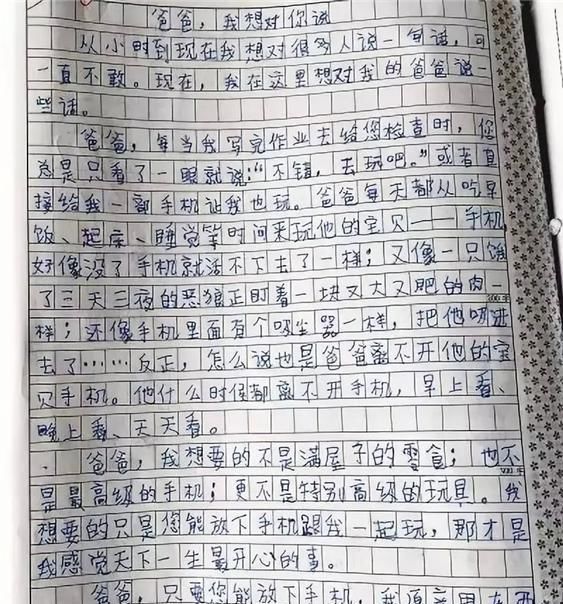 爸爸，我想对你说
从小时到现在我想对很多人说一句话，可
一直不敢。现在，我在这里想对我的爸爸说一
些话。
爸爸，每当我写完作业去给您检查时，您
总是只看了一眼就说："不错，去玩吧。"或者直
接给我一部手机让我也玩。爸爸每天都从吃早
饭、起床、睡觉等时间来玩他的宝贝——手机
好像没了手机就活不下去了一样；又像一只饿
了三天三夜的恶狼正盯着一块又大又肥的肉一
样；还像手机里面有个吸尘器一样，把他吸进
去了……反正，怎么说也是爸爸离不开他的宝
贝手机。他什么时候都离不开手机，早上看、
晚上看、天天看。
爸爸，我想要的不是满屋子的零食；也不
是最高级的手机；更不是特别高级的玩具。我
想要的只是您能放下手机跟我一起玩，那才是
我感觉天下一生最开心的事。
爸爸，只要您能放下手机，我